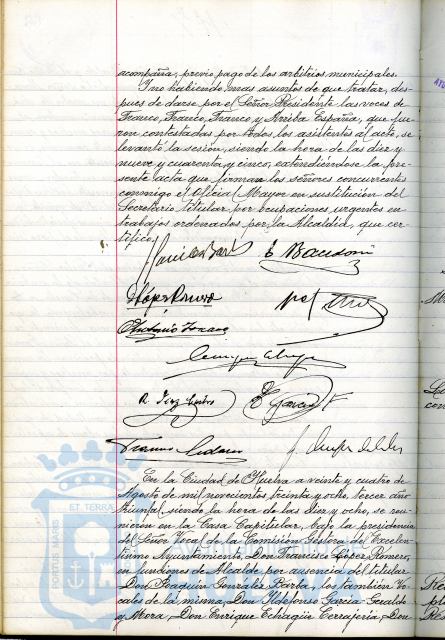 acompaña, previo pago de los arbitrios municipales.
Y no habiendo mas asuntos de que tratar, des-
pues de darse por el Señor Presidente las voces de
Franco, Franco, Franco y Arriba España, que fue-
ron contestadas por todos los asistentes al acto, se
levantó la sesión, siendo la hora de las diez y
nueve y cuarenta y cinco, extendiéndose la pre-
sente acta que firman los señores concurrentes
conmigo el Oficial Mayor en sustitución del
Secretario titular por ocupaciones urgentes en
trabajos ordenados por la Alcaldía, que cer-
tifico.
PORTUS MARIS ET TERRA
En la Ciudad de Huelva a veinte y cuatro de
Agosto de mil novecientos treinta y ocho, tercer año
triunfal, siendo la hora de las diez y ocho, se reu-
nieron en la Casa Capitular, bajo la presidencia
del Señor Vocal de la Comisión Gestora del Excelen-
tísimo Ayuntamiento, Don Francisco López Romero,
en funciones de Alcalde por ausencia del titular
Don Joaquín González Barba, los también Vo-
cales de la misma, Don Ildefonso García-Geralde
y Mora, Don Enrique Echagüe Cerrajería, Don